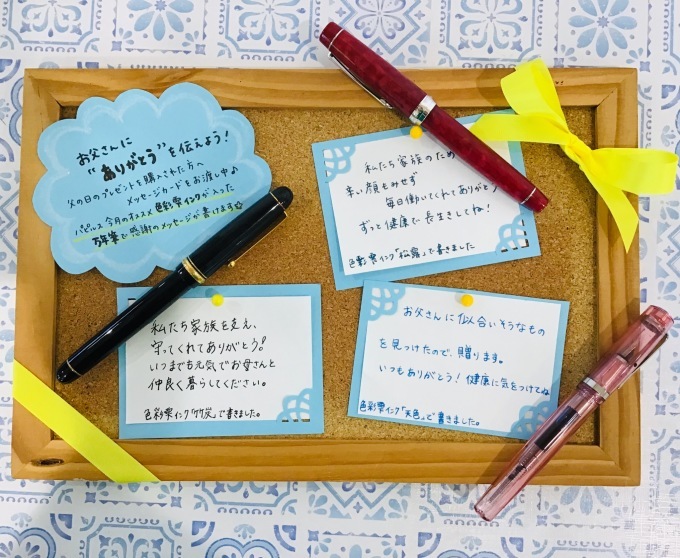 お父さんに
"ありがとう"を伝えよう!
父の日のプレゼントを購入された方へ
メッセージカードをお渡し中♪
パピルス今月のオススメ色彩雫インクが入った
万年筆で感謝のメッセージが書けます☆
私たち家族のため
辛い顔もみせず
毎日働いてくれてありがとう
ずっと健康で長生きしてね!
色彩雫インク「松露」で書きました
私たち家族を支え、
守ってくれてありがとう!
いつまでも元気でお母さんと
仲良く暮らしてください。
色彩雫インク「竹炭」で書きました。
お父さんに似合いそうなもの
を見つけたので、贈ります。
いつもありがとう!健康に気をつけてね
色彩雫インク「天色」で書きました。